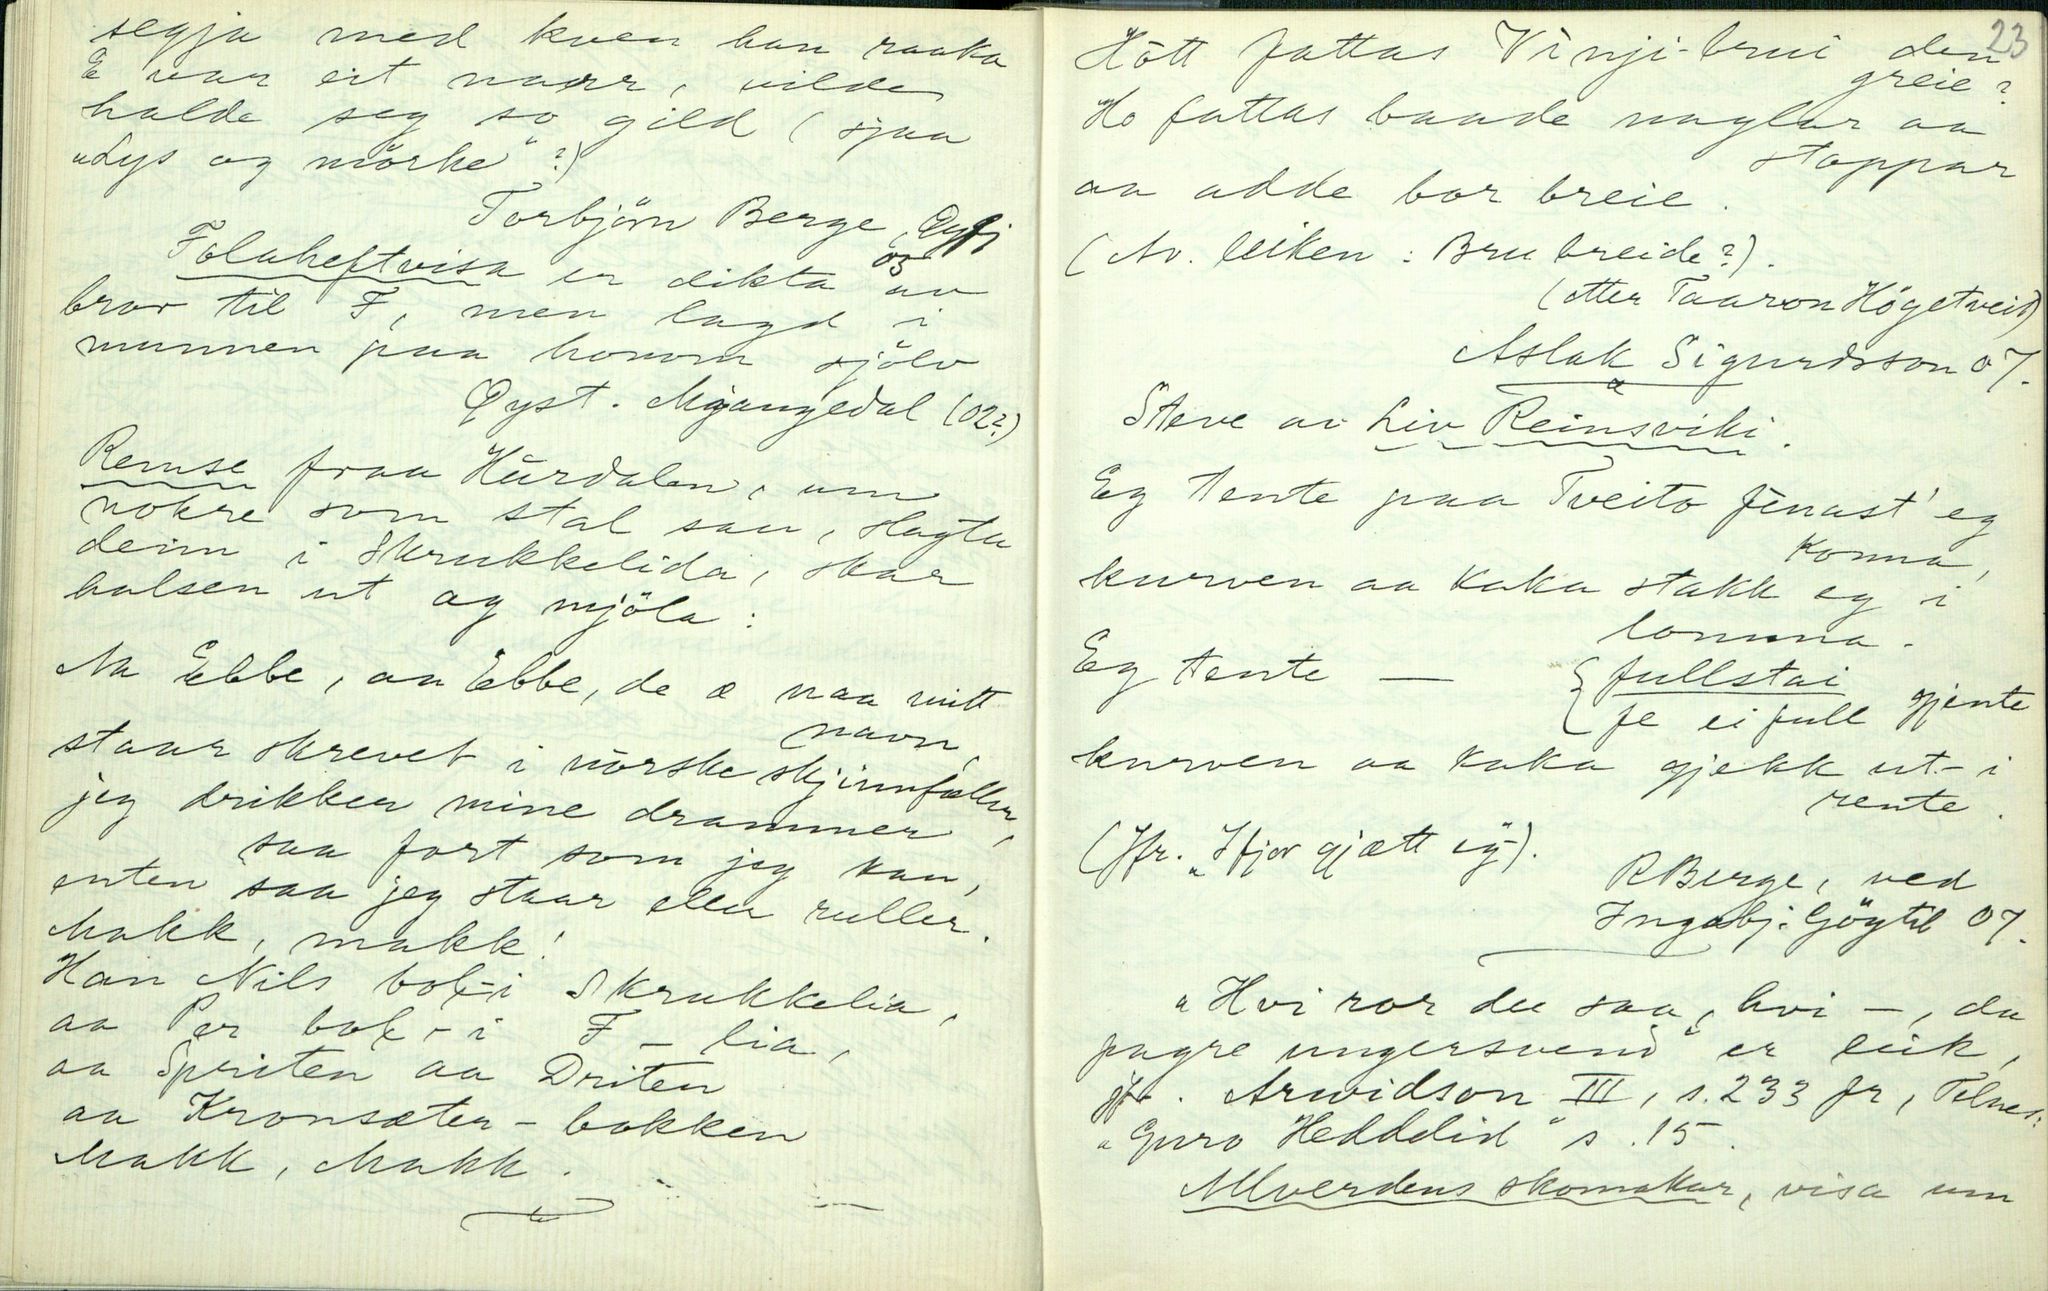 segja med kven han raaka
E var eit naarr, vilde
halde seg so gild (sjaa
"Lys og mörke"?)
Torbjörn Berge, Öyfj
03
Folaheftvisa er dikta av
bror til F, men lagd i
munnen paa honom sjölv
Öyst. Mjaugedal (02?)
Remse fraa Hurdalen, um
nokre som stal sau, slagta
deim i Skrukkelida, skar
halsen ut og mjöla:
Aa Ebbe, aa Ebbe, de æ naa mitt
navn,
staar skrevet i nörske skjinnfæller,
jeg drikker mine drammer
saa fort som jeg kan,
enten saa jeg staar eller ruller.
Makk, makk!
Han Nils bor i Skrukkelia,
aa Per bor i F – lia,
aa Spriten aa Driten
aa Kronsæter-bokken
Makk, Makk.
23
Hòtt fattas Vinji-brui den
greie?
Ho fattas baade naglar aa
stoppar
aa adde bor breie.
(Av. leiken: Bru breide?).
(etter Taaron Högetveit)
Aslak Sigurdsson 07.
Steve av Liv Reinsviki.
Eg tente paa Tveito fenast' eg
konna,
kurven aa kaka stakk eg i
lomma.
Eg tente — { fullstai
fe ei full gjente
kurven aa kaka gjekk ut i
rente.
(Jfr. "Ifjor gjætt eg").
RBerge, ved
Ingebj. Gögtil 07.
"Hvi ror du saa, hvi –, du
fagre ungersvend" er leik,
jfr. Arwidson III, s. 233 fr, Telnes:
"Guro Heddelid" s. 15.
Allverdens skomakar, visa um